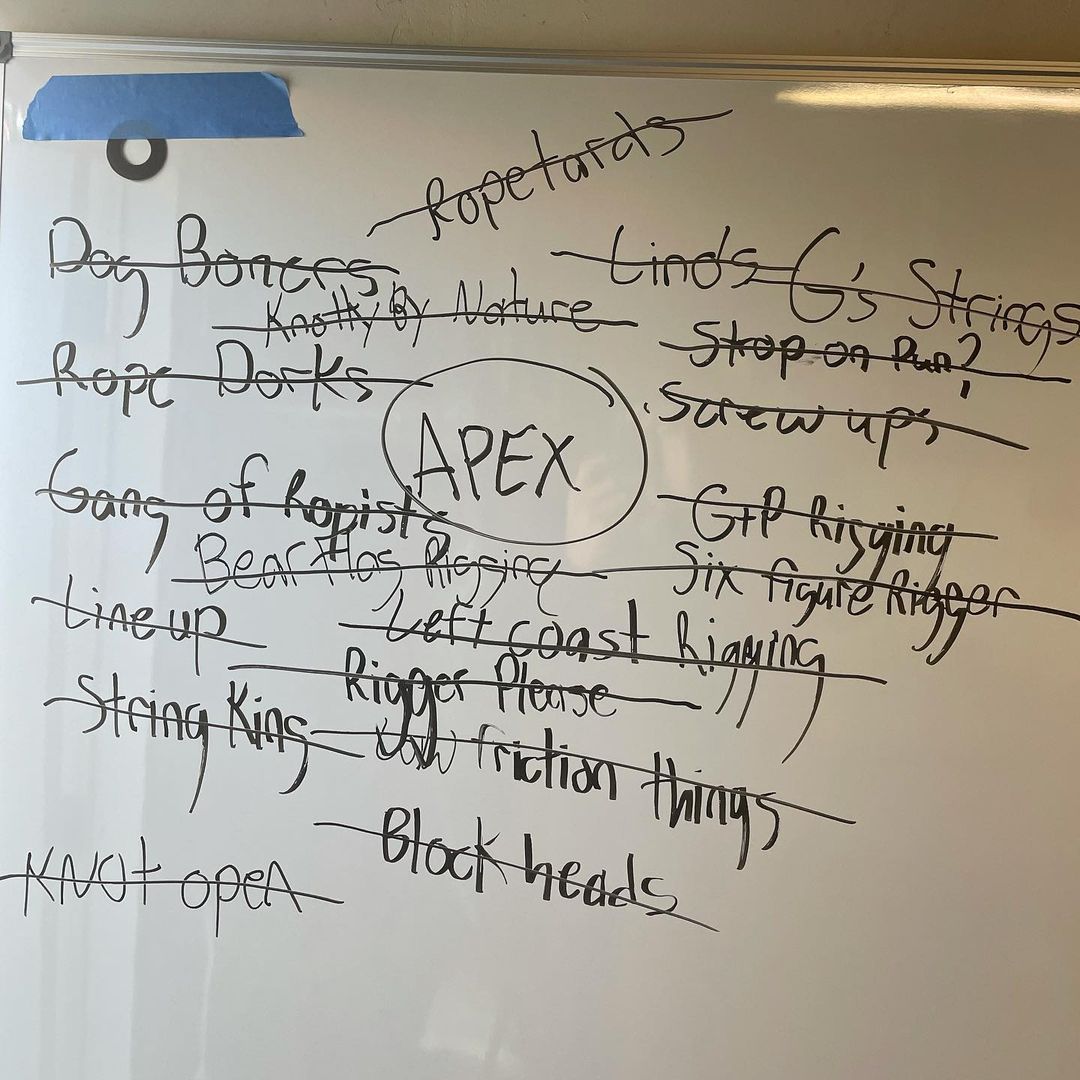 Ropetards
Dog Boners
Lind's G's Strings
Knotty By Nature
Stop on Pun?
Rope Dorks
Screw ups
APEX
Gang of Ropists
G+P Rigging
Bear Flag Rigging
Six figure Rigger
Line up
Left coast Rigging
Rigger Please
String King
Low friction things
Block heads
KNOt open